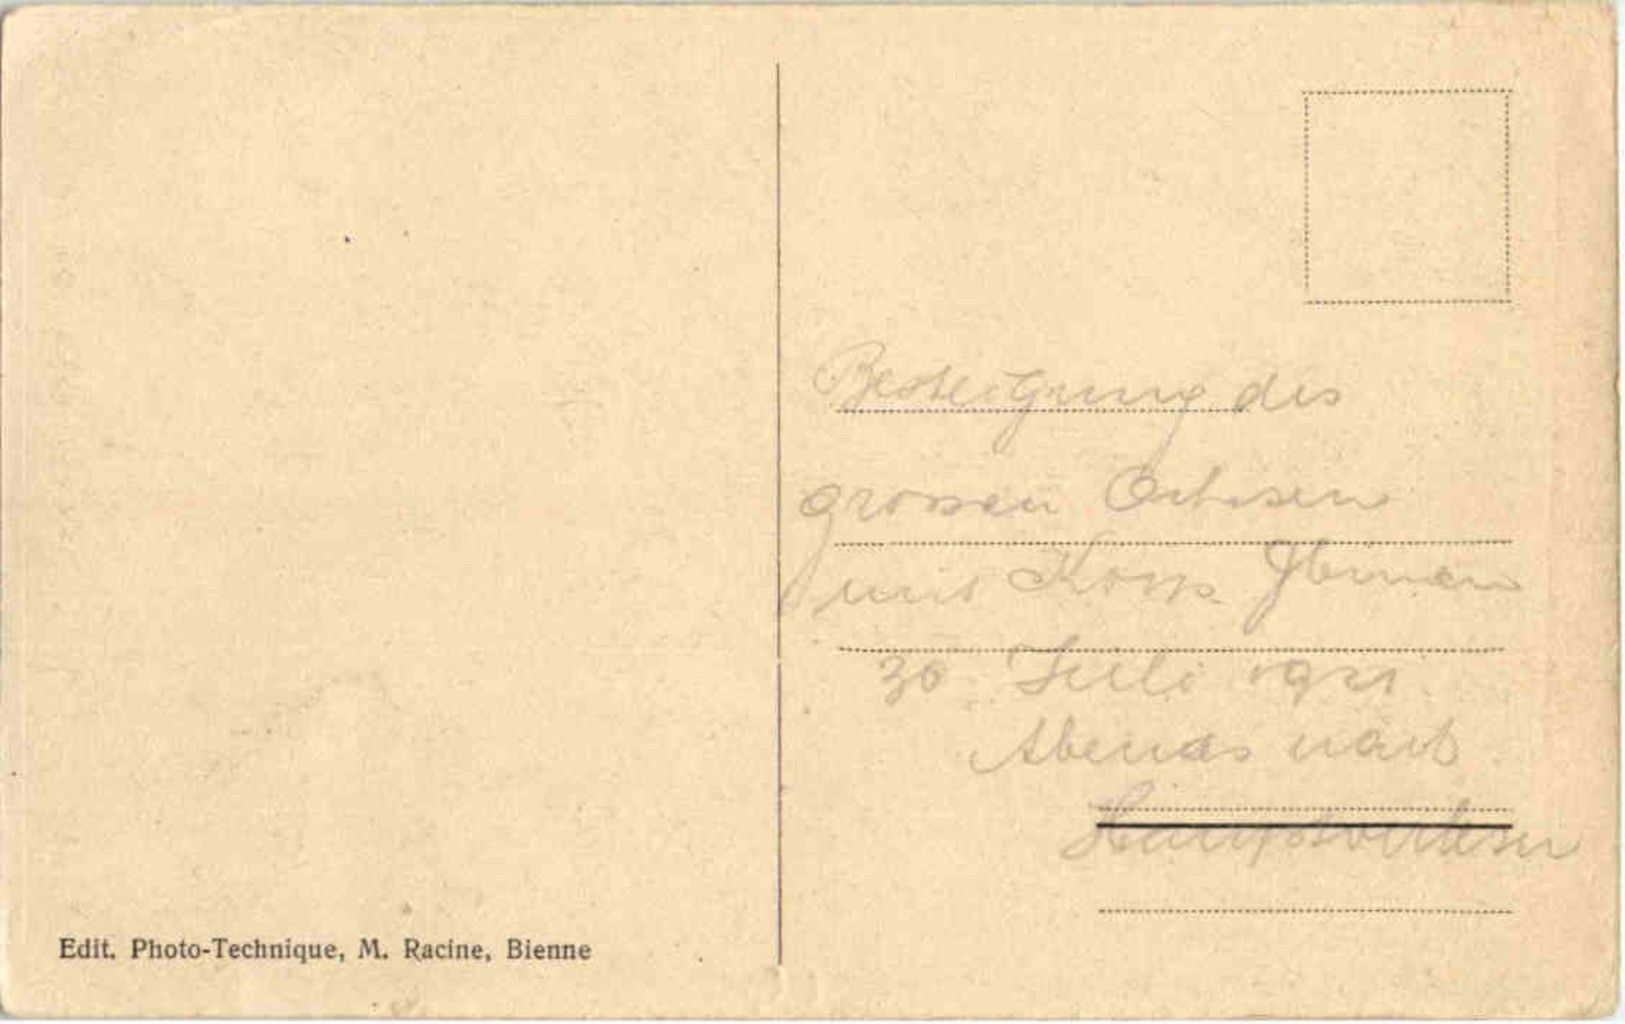 Besteigung des
grossen Ochsen
mit Korp.
30. Juli 1921.
Abends nach
Edit. Photo-Technique, M. Racine, Bienne